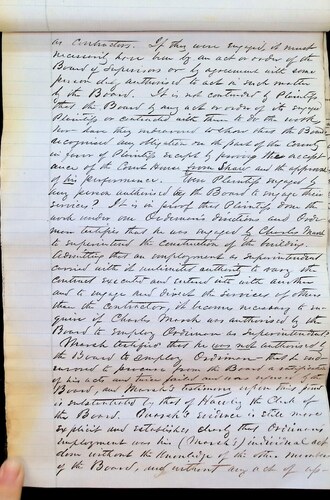 as Contractors. If they were engaged, it must
necessarily have been by an act or order of the
Board of Supervisors or by agreement with some
person duly authorised to act in such matter
by the Board. It is not contended by Plaintiffs
that the Board by any act or order of its engaged
Plaintiffs or contracted with them to do the work
nor have they endeavored to show that the Board
recognised any obligation on the part of the County
in favor of Plaintiffs except by proving the accept
ance of the Court House from Shaw and the approval
of his performance. Were Plaintiffs engaged by
any person authorised by the Board to engage their
services? It is in proof that Plaintiffs done the
work under Mr Ordiman's directions and Ordi
man testifies that he was engaged by Charles Marsh
to superintend the construction of the building.
Admitting that an employment as Superintendent
carried with it unlimited authority to vary the
contract executed and entered into with another
and to engage and direct the services of others
then the contractor, it becomes necessary to in
quire if Charles Marsh was authorised by the
Board to employ Ordiman as Superintendent
Marsh testifies that he was not authorised by
the Board to employ Ordiman - that he endea
vored to procure from the Board a ratification
of his act, and there failed, and was of the
Board, and Marsh's testimony upon this point
is substantiated by that of Hawley the Clerk of
the Board. evidence is still more
explicit and establishes clearly that Ordiman's
employment was his (Marsh's) individual act
done without the knowledge of the other members
of the Board, and without any act of